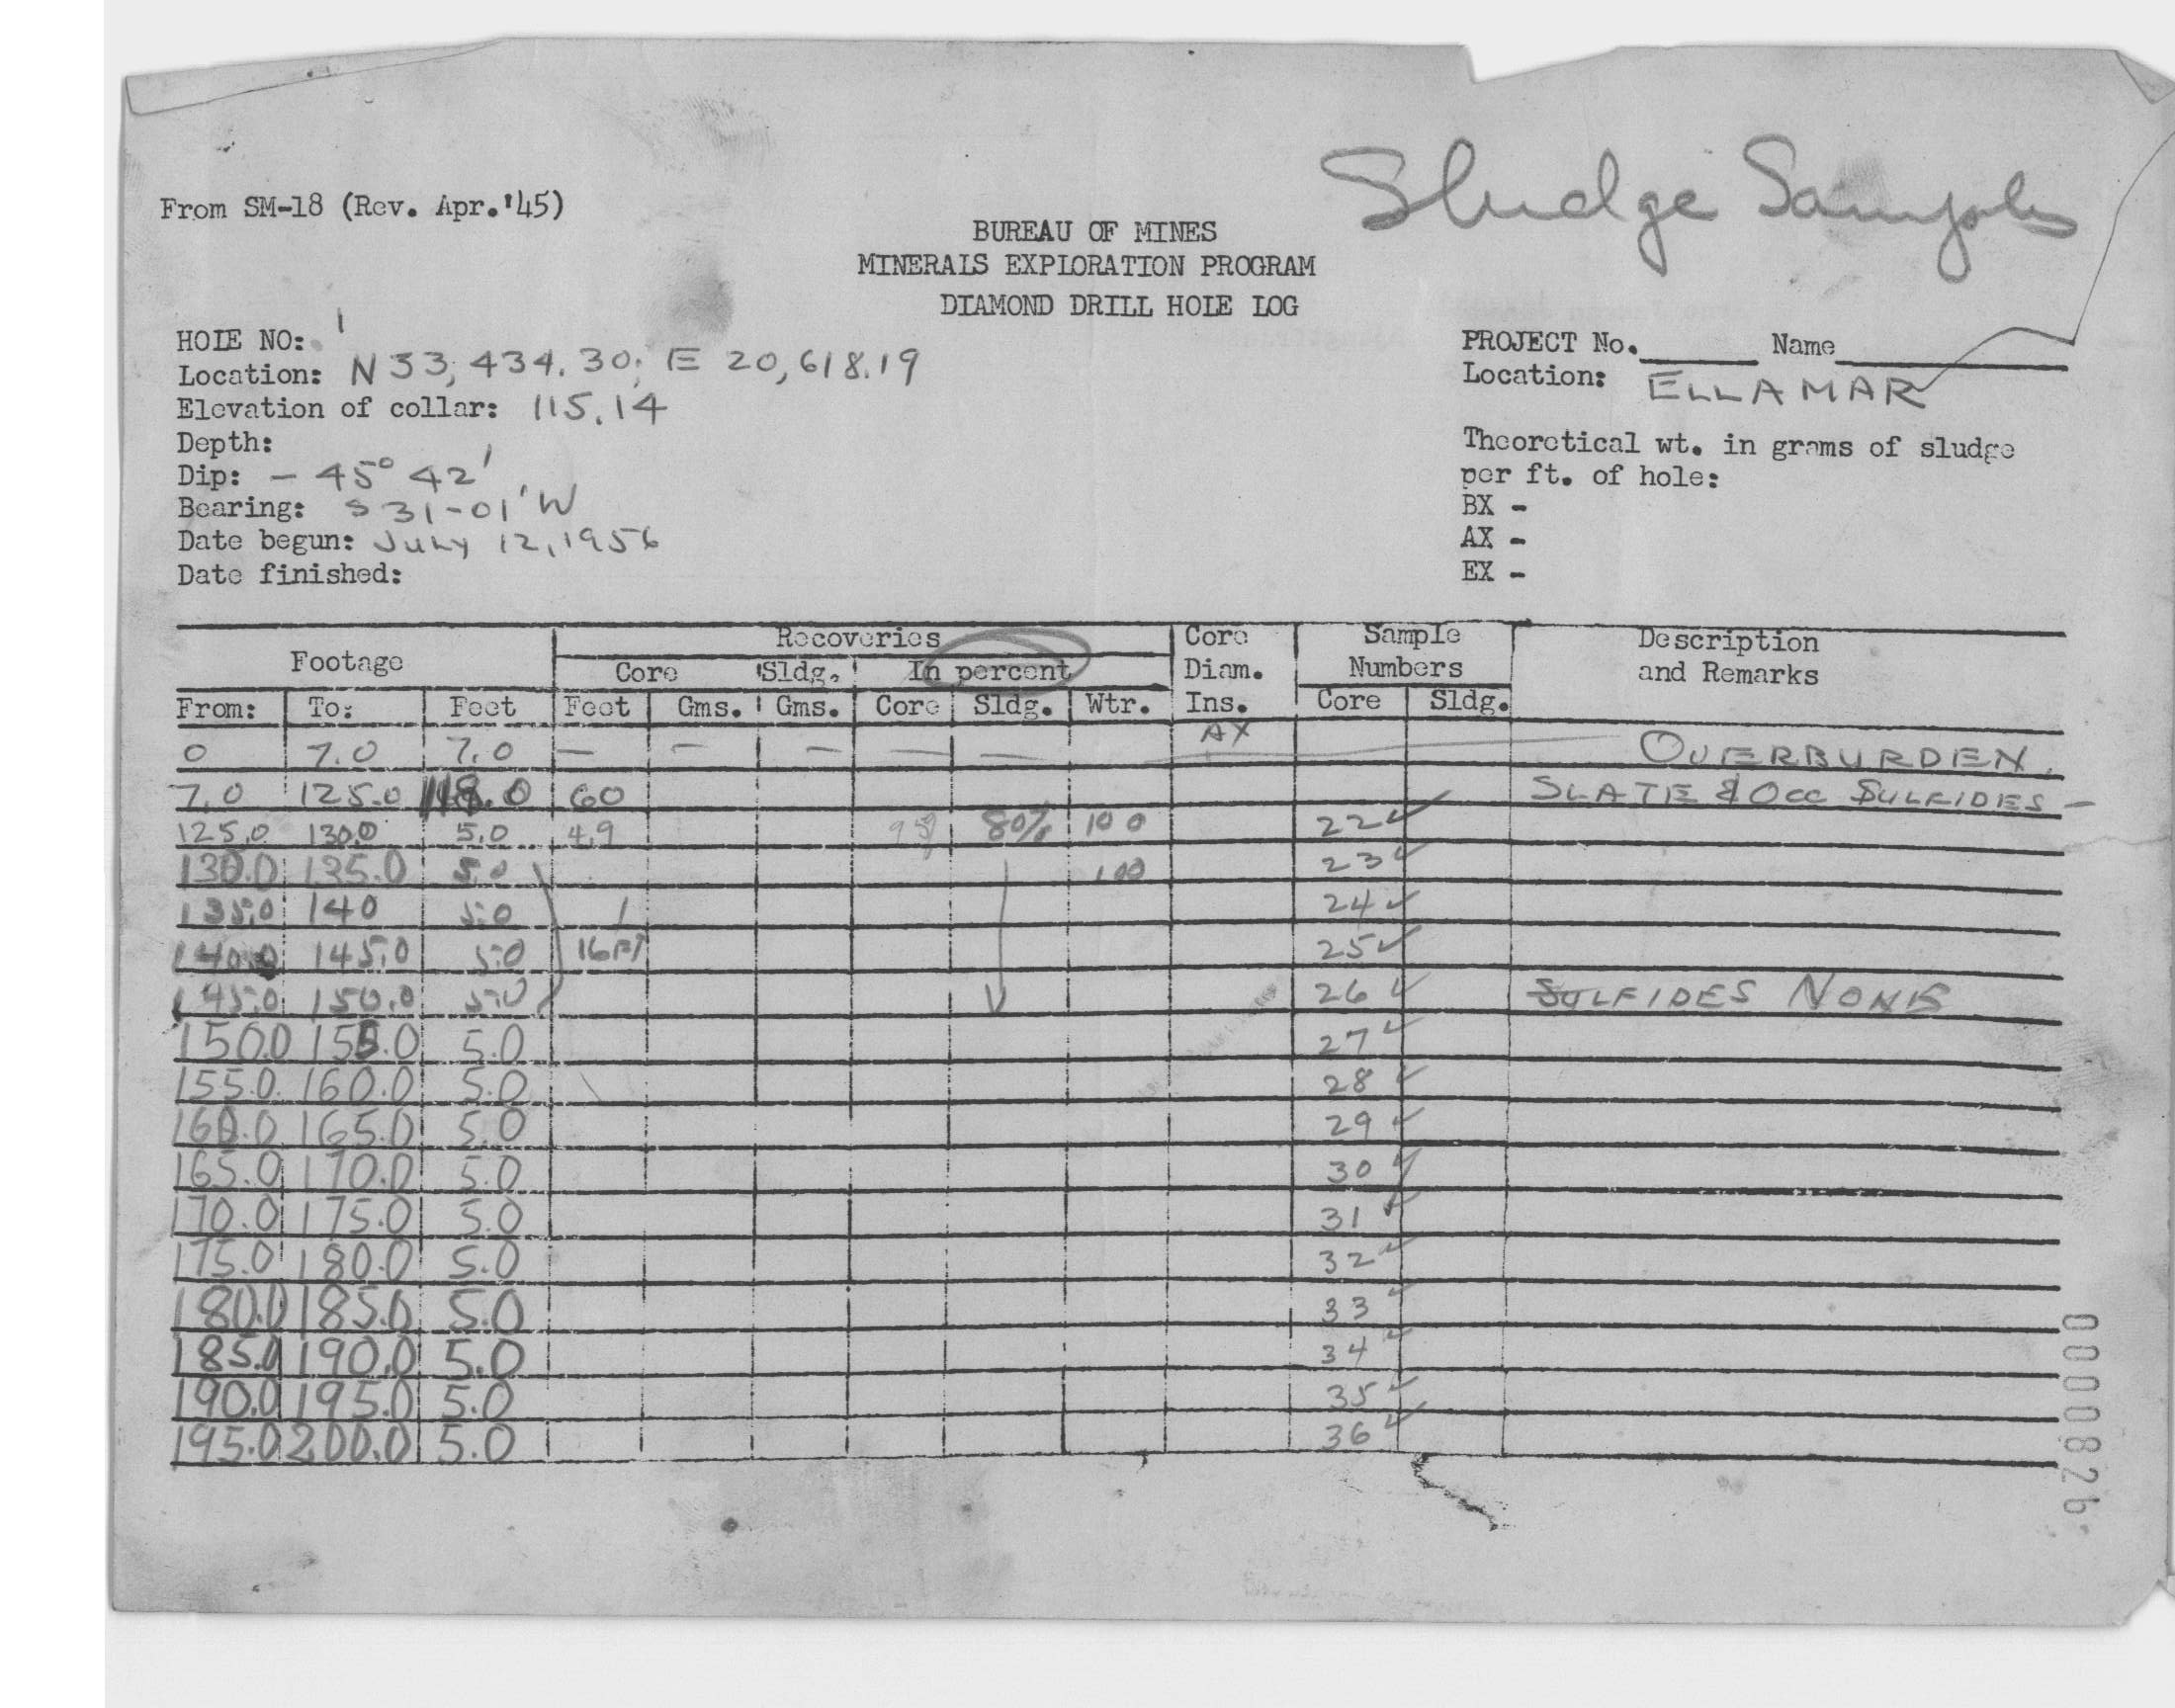 Sludge Samples
From SM-18 (Rev. Apr.'45)
BUREAU OF MINES
MINERALS EXPLORATION PROGRAM
DIAMOND DRILL HOLE LOG
HOLE NO: 1
Location: N 53,434.30; E 20,618.19
Elevation of collar: 115.14
Depth:
Dip: - 45° 42'
Bearing: S 31-01' W
Date begun: July 12, 1956
Date finished:
PROJECT No. Name
Location: ELLAMAR
Theoretical wt. in grams of sludge
per ft. of hole:
BX -
AX -
EX -
Footage Recoveries Core Diam. Ins. Sample Numbers Description and Remarks
Core Sldg. In percent
From: To: Feet Feet Gms. Gms. Core Sldg. Wtr. Core Sldg.
0 7.0 7.0 — — — — — AX OVERBURDEN
7.0 125.0 118.0 60 SLATE & OCC SULFIDES —
125.0 130.0 5.0 4.9 80% 100 22 ✓
130.0 135.0 5.0 100 23 ✓
135.0 140 5.0 24 ✓
140.0 145.0 5.0 16 FT 25 ✓
145.0 150.0 5.0 26 ✓ SULFIDES NONE
150.0 155.0 5.0 27 ✓
155.0 160.0 5.0 28 ✓
160.0 165.0 5.0 29 ✓
165.0 170.0 5.0 30 ✓
170.0 175.0 5.0 31 ✓
175.0 180.0 5.0 32 ✓
180.0 185.0 5.0 33 ✓
185.0 190.0 5.0 34 ✓
190.0 195.0 5.0 35 ✓
195.0 200.0 5.0 36 ✓
0000826